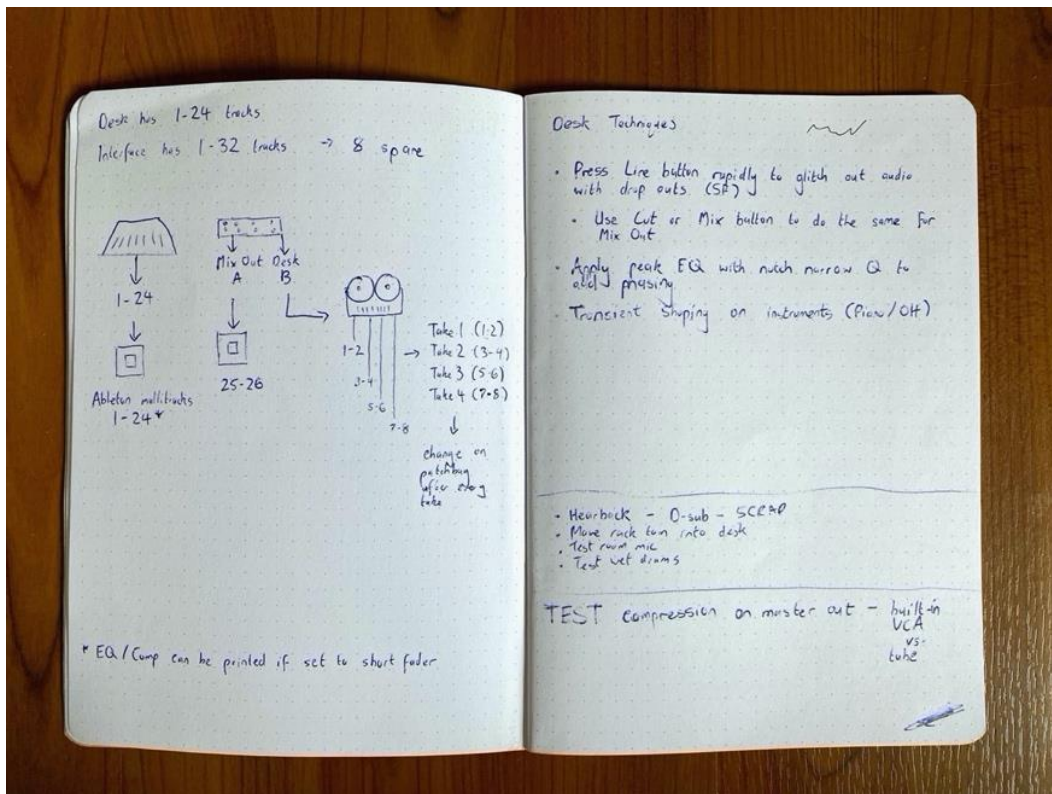 Desk has 1-24 tracks
Interface has 1-32 tracks → 8 spare
Mix Out Desk
A B
1-24
25-26
Ableton multitracks
1-24*
1-2
3-4
5-6
7-8
→ Take 1 (1-2)
Take 2 (3-4)
Take 3 (5-6)
Take 4 (7-8)
change on
patchbay
after every
take
* EQ/Comp can be printed if set to short fader
Desk Techniques
• Press Line button rapidly to glitch out audio
with drop outs (SF)
• Use Cut or Mix button to do the same for
Mix Out
• Apply peak EQ with notch narrow Q to
add phasing
• Transient shaping on instruments (Piano/OH)
• Hearback - D-sub - SCRAP
• Move rack tom into desk
• Test room mic
• Test wet drums
TEST compression on master out - built-in
VCA
vs.
tube